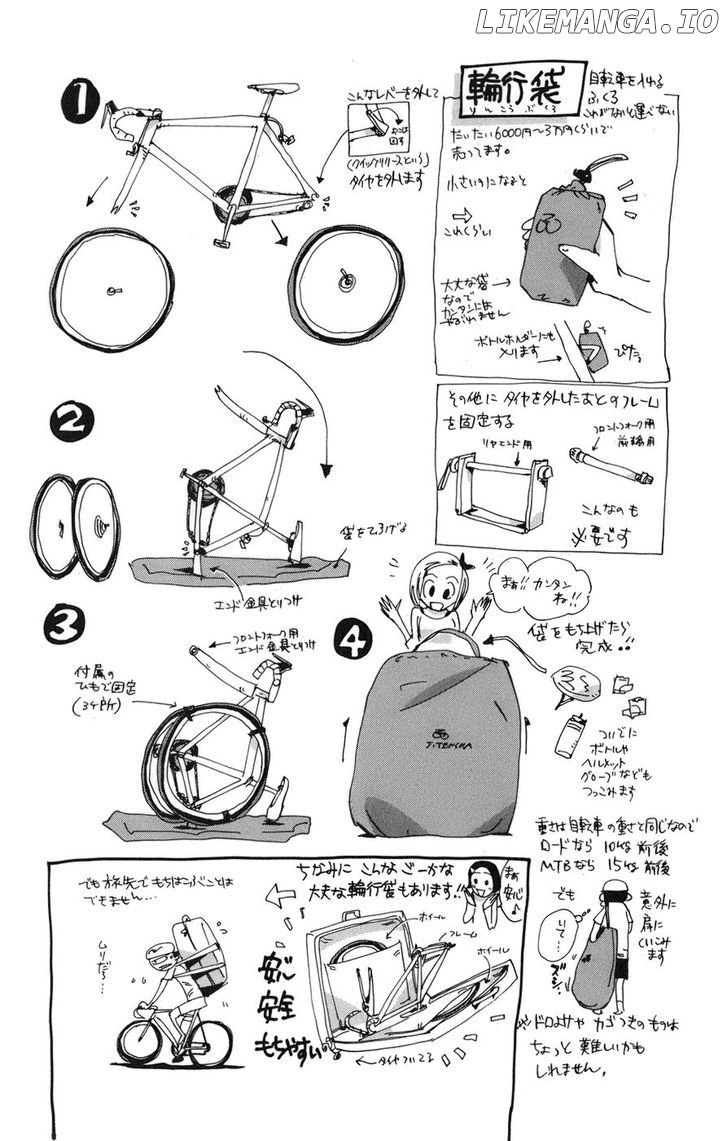 LIKEMANGA.IO
輪行袋
りんこうぶくろ
自転車を入れる
ふくろ
これがないと運べない
だいたい6000円〜3万円くらいで
売ってます。
小さいのになると
これくらい
大丈夫な袋
なので
カンタンには
やぶれません
ボトルホルダーにも
入ります
ぴたっ
1
こんなレバーを外して
(クイックリリースという)
タイヤを外します
その他に タイヤを外したあとのフレーム
を固定する
リヤエンド用
フロントフォーク用
前輪用
こんなのも
必要です
2
袋をひろげる
エンド金具とりつけ
3
フロントフォーク用
エンド金具とりつけ
付属の
ひもで固定
(3ヶ所)
4
まぁ!!カンタン
ね!!
袋をもち上げたら
完成!!
J:TENSHA
ついでに
ボトルや
ヘルメット
グローブなども
つっこみます
重さは自転車の重さと同じなので
ロードなら 10kg前後
MTBなら 15kg前後
でも
いて…
ズシ
意外に
肩に
くいこみ
ます
※ドロよけや カゴつきのものは
ちょっと 難しいかも
しれません。
ちなみに こんな ごーかな
大丈夫な輪行袋もあります!!
まぁ
安心♪
ホイール
フレーム
ホイール
安心
安全
もちやすい
タイヤついてる
でも旅先でもちはこぶことは
できません…
ムリだろ…